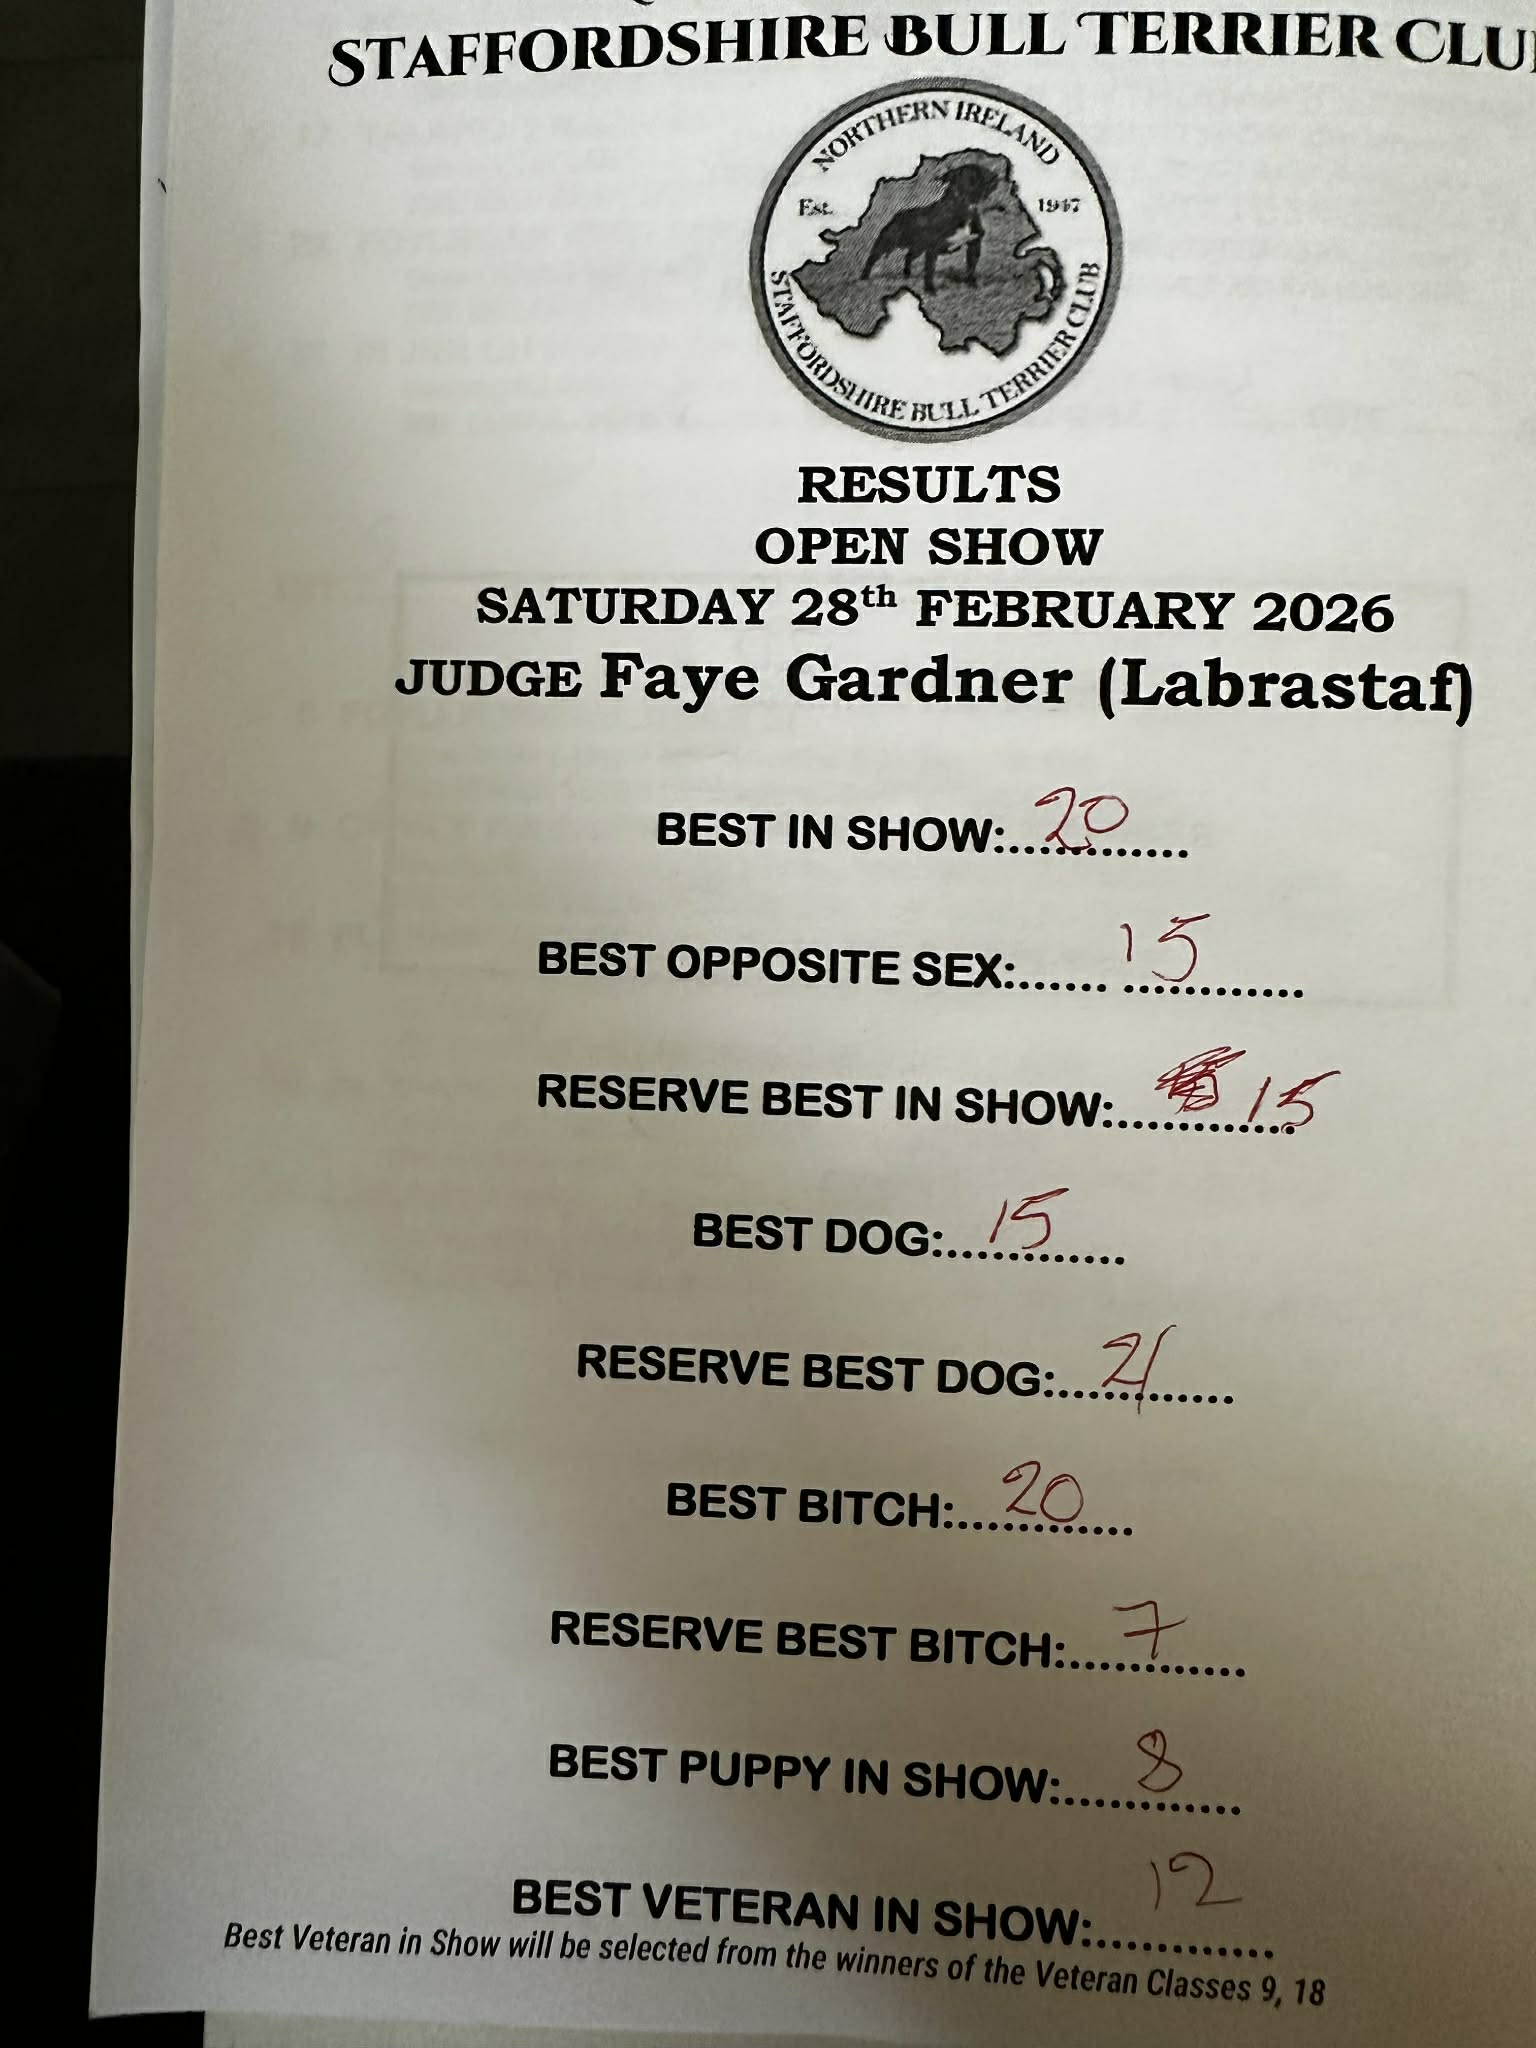 STAFFORDSHIRE BULL TERRIER CLU
NORTHERN IRELAND
Est. 1947
STAFFORDSHIRE BULL TERRIER CLUB
RESULTS
OPEN SHOW
SATURDAY 28th FEBRUARY 2026
JUDGE Faye Gardner (Labrastaf)
BEST IN SHOW:............. 20
BEST OPPOSITE SEX:....... ............ 15
RESERVE BEST IN SHOW:............. 15
BEST DOG:............. 15
RESERVE BEST DOG:............. 21
BEST BITCH:............. 20
RESERVE BEST BITCH:............. 7
BEST PUPPY IN SHOW:............. 8
BEST VETERAN IN SHOW:............. 12
Best Veteran in Show will be selected from the winners of the Veteran Classes 9, 18